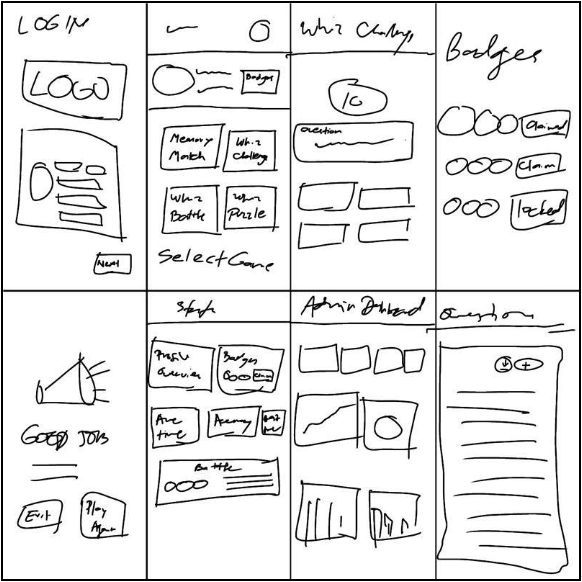 LOGIN
LOGO
Next
Badges
Memory
Match
Whiz
Challeng
Whiz
Battle
Whiz
Puzzle
Select Game
Whiz Challenge
10
Question
Badges
Claimed
Claim
locked
GOOD JOB
Exit
Play
Again
Profile
Overview
Badges
Claim
Ave
time
Accuracy
Battle
Admin Dashboard
Questions